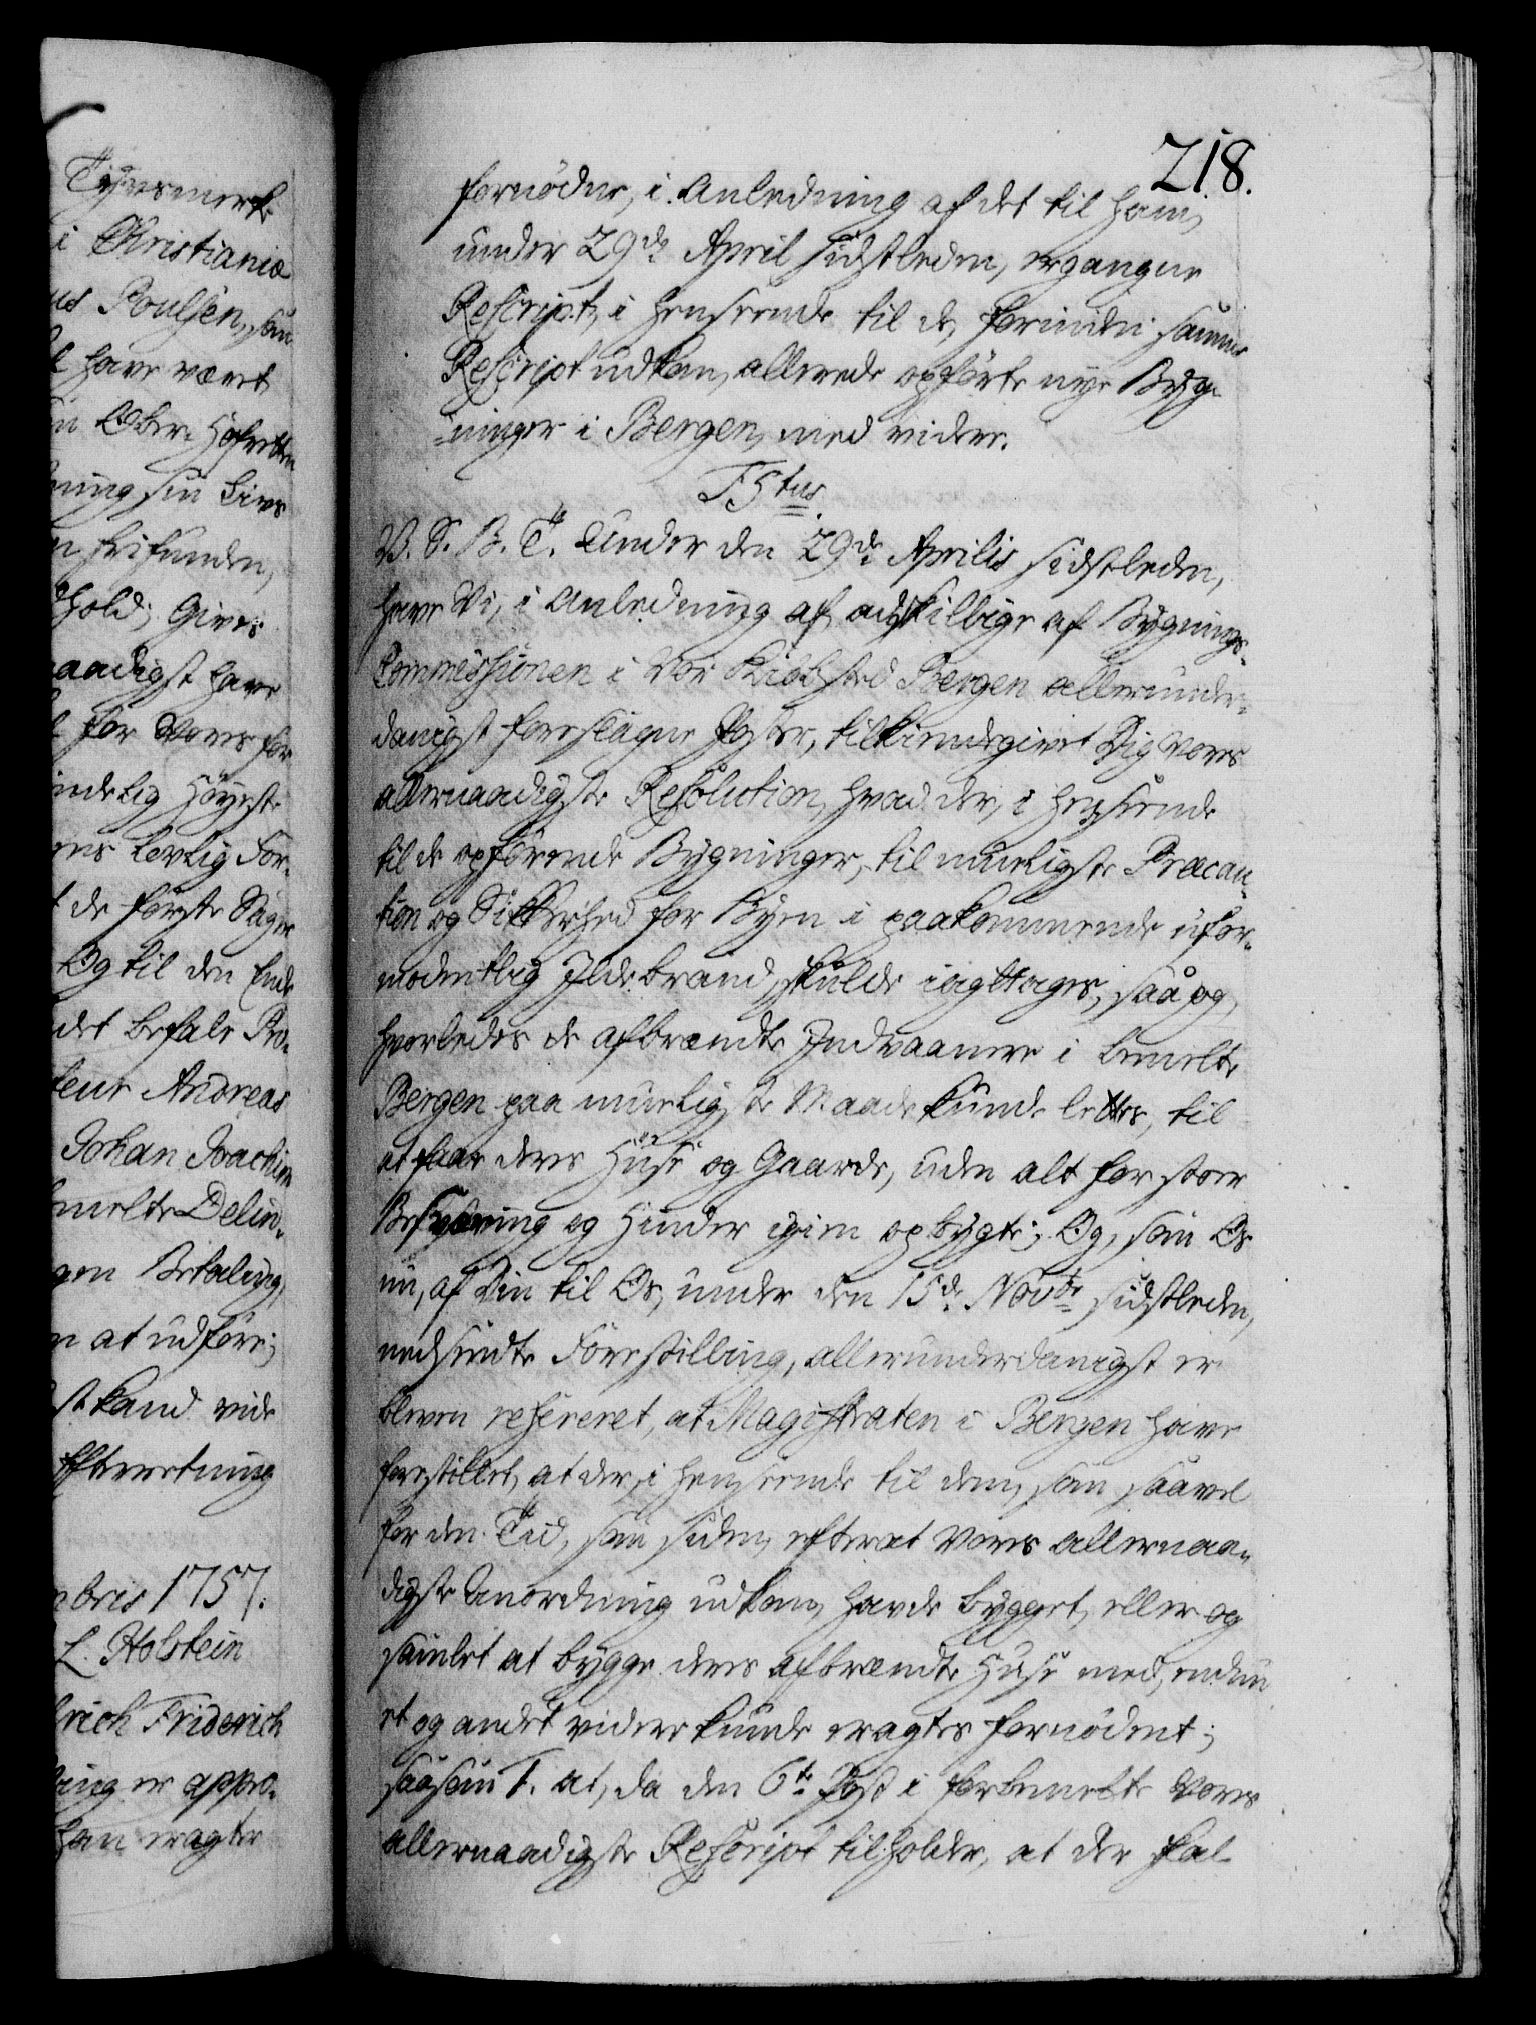 Tyvesmerk
i Christiania
Poulsen, som
have været
Ober-Hofretten
ning sin Livs
frifunden,
hold; Gives
naadigst have
for Vores for
indelig Höyeste
lovlig For-
de første Sager
Og til den Ende
det befale Pro-
teur Andreas
Johan Joachim
melte Delin-
gen Betaling,
at udføre;
kand vide
Efterretning
bris 1757.
L. Holstein
rich Friderich
ring er appro-
han eragter
218.
fornöden, i Anledning af det til ham,
under 29de April sidstleden, ergangne
Rescript, i henseende til de, forinden samme
Rescript udkom, allerede opførte nye Byg-
=ninger i Bergen, med videre.
F5tus.
V. S. B. T. Under den 29de Aprilis sidstleden,
have Vi, i Anledning af adskillige af Bygnings-
Commissionen i Vor Kiøbsted Bergen allerunder-
danigst foreslagne Poster, tilkiendegivet Dig Vores
allernaadigste Resolution, hvad der, i henseende
til de opførende Bygninger, til mueligste Præcau-
tion og Sikkerhed for Byen i paakommende ufor-
modentlig Ildebrand, skulde iagttages, saa og,
hvorledes de afbrændte Indvaanere i bemelte
Bergen paa mueligste Maade kunde lettes, til
at faae deres Huse og Gaarde, uden alt for stoer
Besværing og Hinder igien opbygte; Og, som Os
nu, af Din til Os, under den 15de Novbr sidstleden,
nedsendte Forestilling, allerunderdanigst er
bleven refereret, at Magistraten i Bergen have
forestillet, at der, i henseende til dem, som saavel
for den Tid, som siden, efterat Vores allernaa-
digste Anordning udkom, havde bygget, eller og
samlet at bygge deres afbrændte Huse med, endnu
et og andet videre kunde eragtes fornödent;
saasom 1. at, da den 6te Post i forbemelte Vores
allernaadigste Rescript tilholder, at der skal